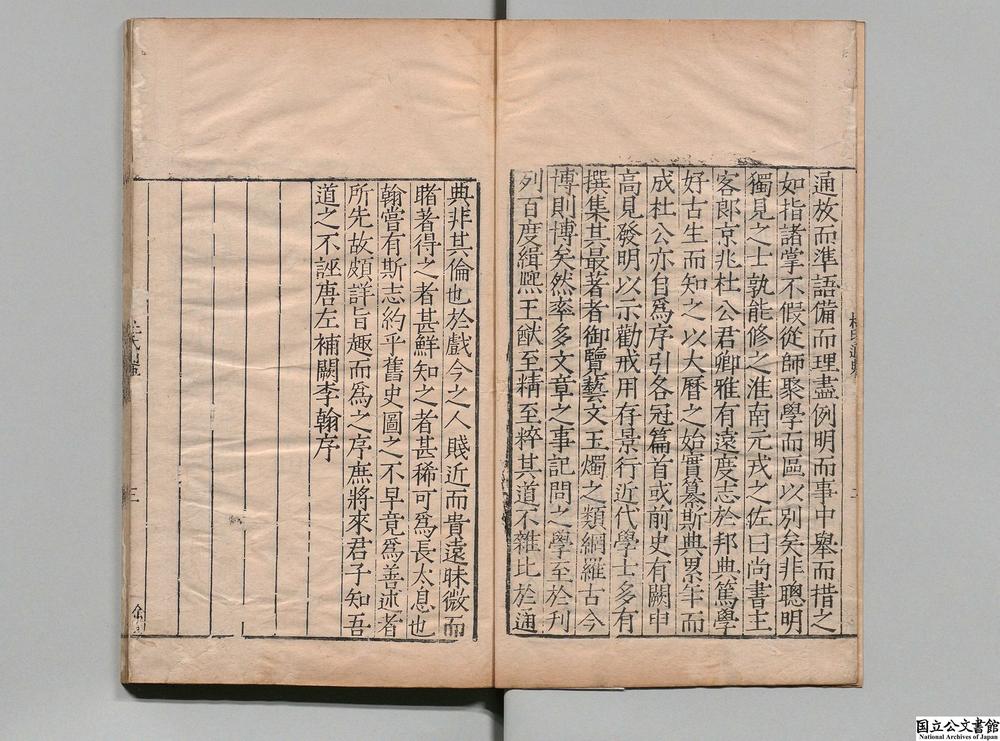 通放而準語備而理盡例明而事中舉而措之
如指諸掌不假從師聚學而區以別矣非聰明
獨見之士孰能修之淮南元戎之佐曰尚書主
客郎京兆杜公君卿雅有遠度志於邦典篤學
好古生而知之以大曆之始實纂斯典累年而
成杜公亦自爲序引各冠篇首或前史有闕申
高見發明以示勸戒用存景行近代學士多有
撰集其最著者御覽藝文玉燭之類網羅古今
博則博矣然率多文章之事記問之學至於刊
列百度緝熈王猷至精至粹其道不雜比於通
典非其倫也於戲今之人賤近而貴遠昧微而
睹著得之者甚鮮知之者甚稀可爲長太息也
翰嘗有斯志約乎舊史圖之不早竟爲善述者
所先故頗詳旨趣而爲之序庶將來君子知吾
道之不誣唐左補闕李翰序
三
国立公文書館
National Archives of Japan